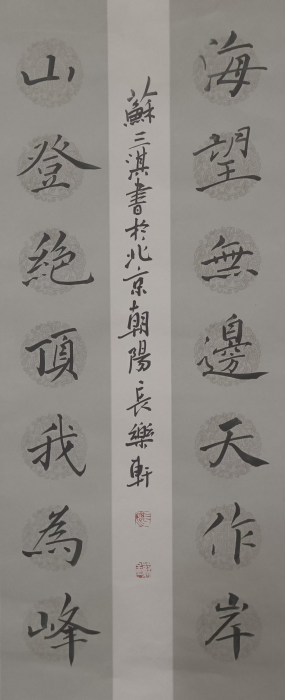 海望無邊天作岸
山登絶頂我為峰
蘇三淇書於北京朝陽長樂軒